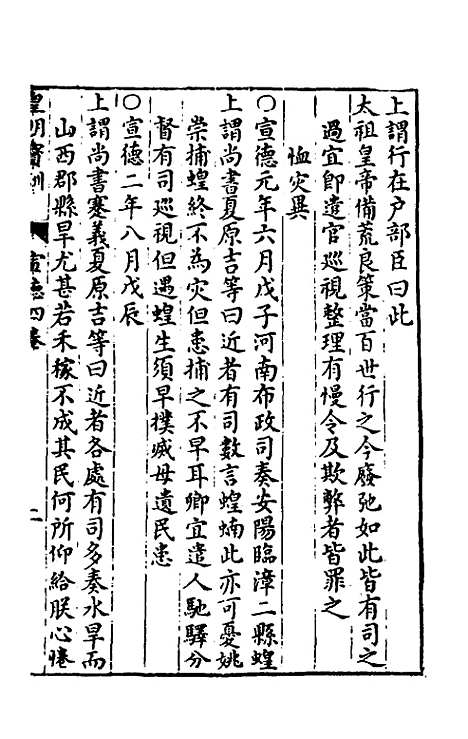 上謂行在户部臣曰此
太祖皇帝備荒良策當百世行之今廢弛如此皆有司之
過宜即遣官巡視整理有慢令及欺弊者皆罪之
恤灾異
○宣德元年六月戊子河南布政司奏安陽臨漳二縣蝗
上謂尚書夏原吉等曰近者有司數言蝗蝻此亦可憂姚
崇捕蝗終不為灾但患捕之不早耳卿宜遣人馳驛分
督有司巡視但遇蝗生須早撲滅毋遺民患
○宣德二年八月戊辰
上謂尚書蹇義夏原吉等曰近者各處有司多奏水旱而
山西郡縣旱尤甚若禾稼不成其民何所仰給朕心惓
皇明寳訓 宣德四卷 二